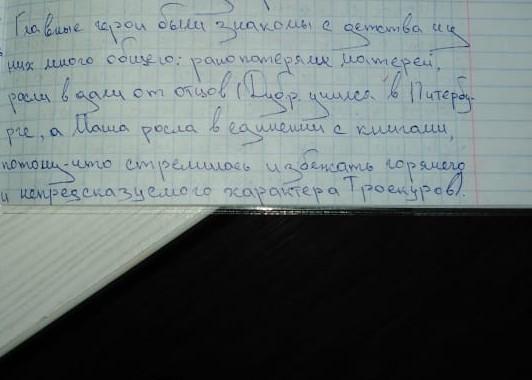 Главные герои были знакомы с детства и у
них много общего: рано потеряли матерей,
росли в дали от отцов (Дубр. учился в Питербу-
рге, а Маша росла в единении с книгами,
потому-что стремилась избежать горячего
и непредсказуемого характера Троекуров).